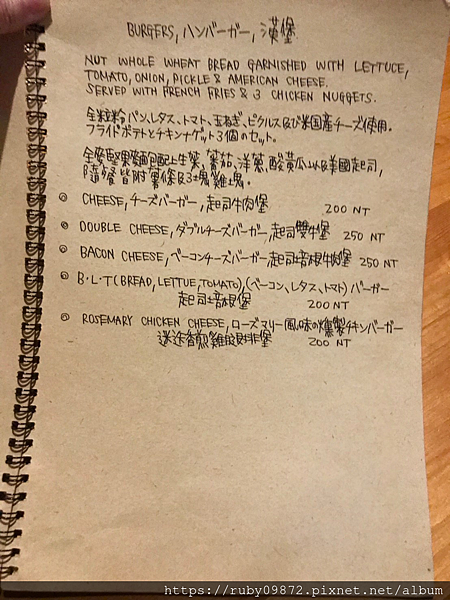 BURGERS, ハンバーガー, 漢堡
NUT WHOLE WHEAT BREAD GARNISHED WITH LETTUCE,
TOMATO, ONION, PICKLE & AMERICAN CHEESE.
SERVED WITH FRENCH FRIES & 3 CHICKEN NUGGETS.
全粒粉パン、レタス、トマト、玉ねぎ、ピクルス及び米国産チーズ使用.
フライドポテトとチキンナゲット3個のセット.
全麥堅果麵包配上生菜、蕃茄、洋蔥、酸黃瓜以及美國起司,
隨餐皆附薯條及3塊雞塊.
CHEESE, チーズバーガー, 起司牛肉堡 200 NT
DOUBLE CHEESE, ダブルチーズバーガー, 起司雙牛堡 250 NT
BACON CHEESE, ベーコンチーズバーガー, 起司培根牛堡 250 NT
B・L・T (BREAD, LETTUE, TOMATO), (ベーコン、レタス、トマト) バーガー
起司培根堡 200 NT
ROSEMARY CHICKEN CHEESE, ローズマリー風味の燻製チキンバーガー
迷迭香煎雞腿排堡 200 NT
https://ruby09872.pixnet.net/album